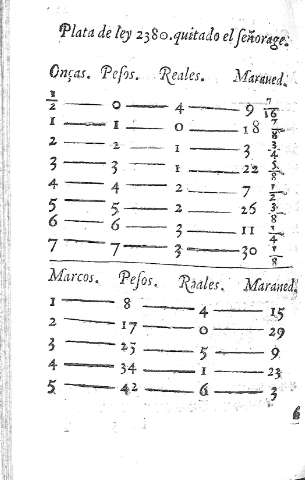 Plata de ley 2380. quitado el ſeñorage.
Onças. Peſos. Reales. Maraued.
1/2 — 0 — 4 — 9 7/16
1 — 1 — 0 — 18 7/8
2 — 2 — 1 — 3 3/4
3 — 3 — 1 — 22 5/8
4 — 4 — 2 — 7 1/2
5 — 5 — 2 — 26 3/8
6 — 6 — 3 — 11 1/4
7 — 7 — 3 — 30 1/8
Marcos. Peſos. Reales. Maraued.
1 — 8 — 4 — 15
2 — 17 — 0 — 29
3 — 25 — 5 — 9
4 — 34 — 1 — 23
5 — 42 — 6 — 3
6